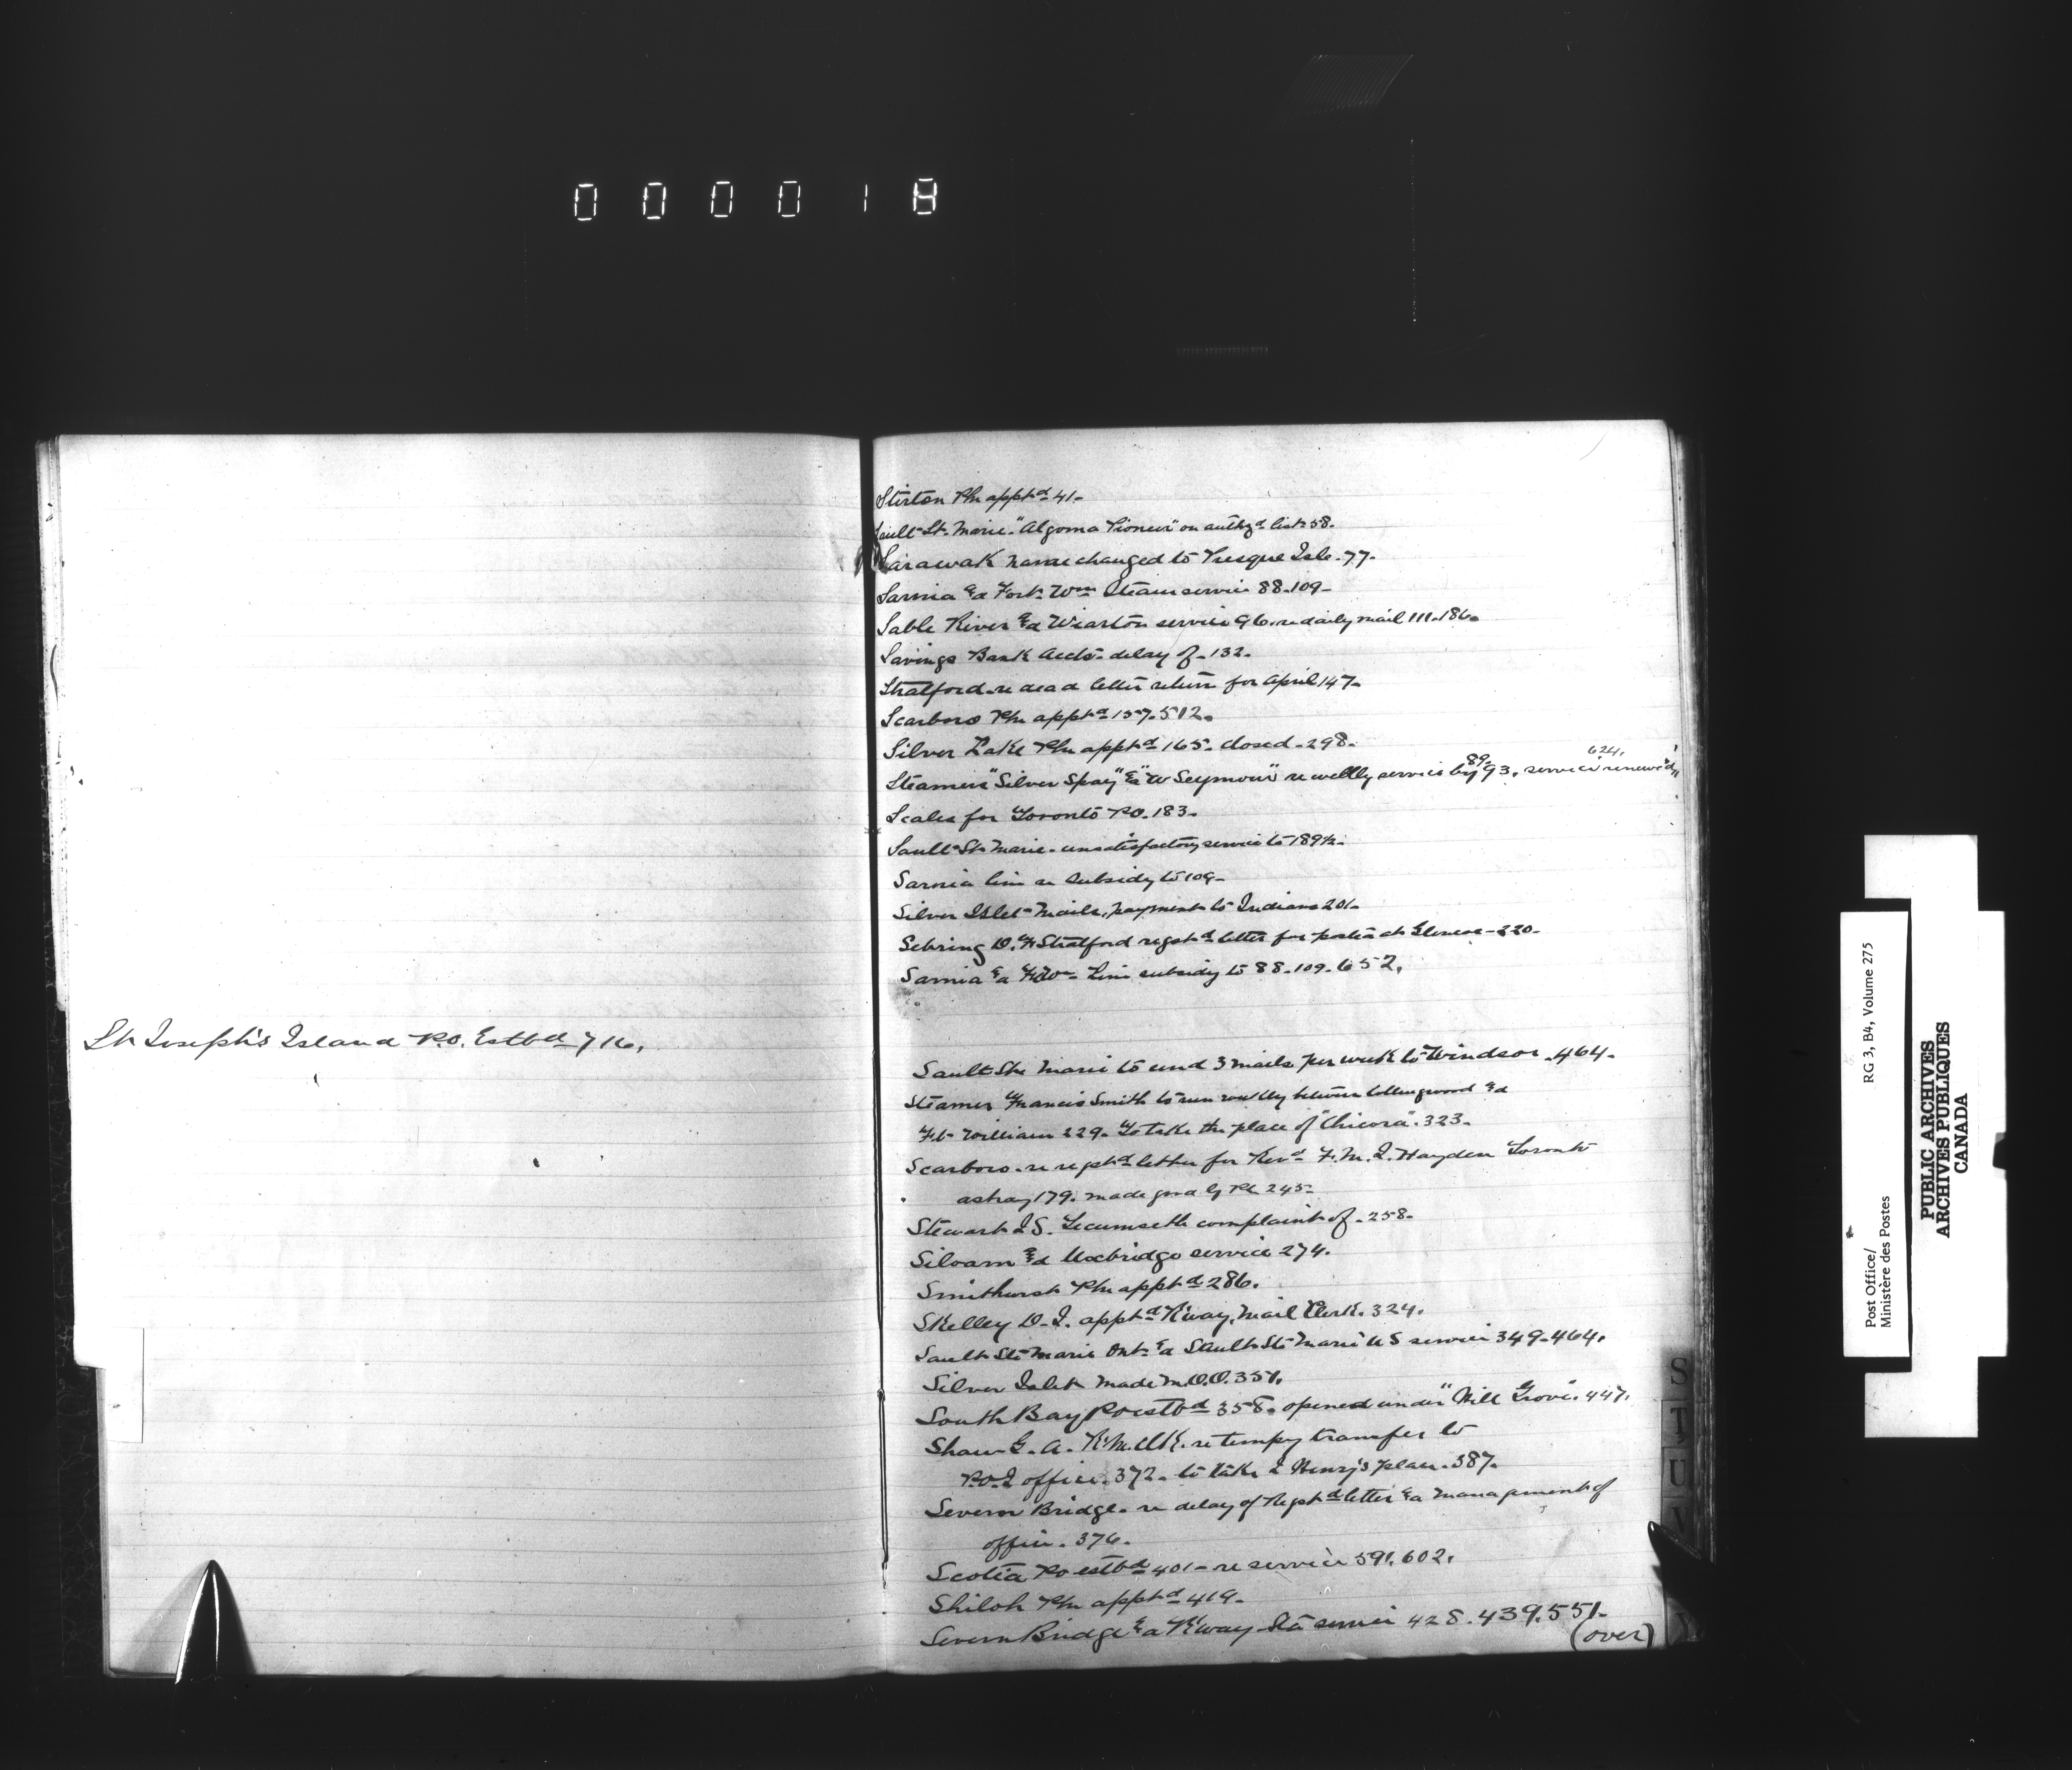 000018
St Joseph's Island P.O. Estbd 716.
Stirton Pm apptd 41.
Sault St. Marie. "Algoma Pioneer" on authzd list 58.
Sarawak name changed to Presque Isle. 77.
Sarnia & Fort Wm Steam service 88.109.
Sable River & Wiarton service 96. re daily mail 111.186.
Savings Bank Accts delay of. 132.
Stratford re dead letter return for April 147.
Scarboro Pm apptd 157.512.
Silver Lake Pm apptd 165. closed. 298.
Steamers "Silver Spray" & "W Seymour" re weekly service by 89. 93. service renewed 624.
Scales for Toronto P.O. 183.
Sault St. Marie. unsatisfactory service to 189½.
Sarnia line re subsidy to 109.
Silver Islet Mails, payment to Indians 201.
Sebring D. F. Stratford regstd letter for party at Glencoe 220.
Sarnia & Ft Wm Line subsidy to 88.109.652.
Sault Ste Marie to send 3 mails per week to Windsor. 464.
Steamer Francis Smith to run weekly between Collingwood &
Ft William 229. To take the place of "Chicora". 323.
Scarboro. re regstd letter for Revd F. M. I. Hayden Toronto
astray 179. made good by Pm 245.
Stewart I S. Tecumseth complaint of. 258.
Siloam & Uxbridge service 274.
Smithurst Pm apptd 286.
Skelley D. I. apptd R'way Mail Clerk. 324.
Sault Ste Marie Ont. & Sault Ste Marie U S service 349.464.
Silver Islet made M.O.O. 351.
South Bay Po estbd 358. opened under "Mill Grove". 447.
Shaw G. A. R.M.Clk. re tempy transfer to
P.O.I office. 372. to take I Henry's place. 387.
Severn Bridge. re delay of Regstd letter & management of
office. 376.
Scotia Po estbd 401. re service 591. 602.
Shiloh Pm apptd 419.
Severn Bridge & R'way Sta service 428.439.551.
(over)
S
T
U
V
Y
Post Office/
Ministère des Postes
RG 3, B4, Volume 275
PUBLIC ARCHIVES
ARCHIVES PUBLIQUES
CANADA